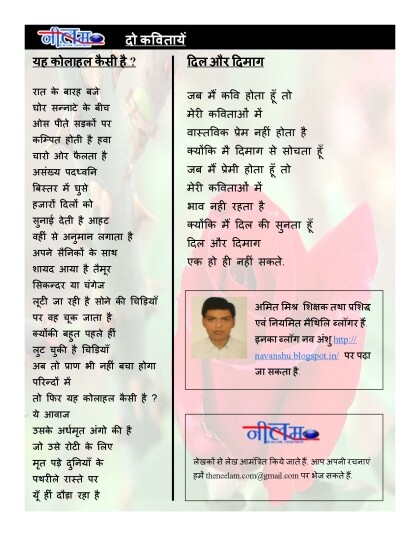 नीलम
दो कवितायें
यह कोलाहल कैसी है ?
रात के बारह बजे
घोर सन्नाटे के बीच
ओस पीते सड़कों पर
कम्पित होती है हवा
चारो ओर फैलता है
असंख्य पदध्वनि
बिस्तर में घुसे
हजारों दिलों को
सुनाई देती है आहट
वहीं से अनुमान लगाता है
अपने सैनिकों के साथ
शायद आया है तैमूर
सिकन्दर या चंगेज
लूटी जा रही है सोने की चिड़ियाँ
पर वह चूक जाता है
क्योंकी बहुत पहले हीं
लुट चुकी है चिडियाँ
अब तो प्राण भी नहीं बचा होगा
परिन्दों में
तो फिर यह कोलाहल कैसी है ?
ये आवाज
उसके अर्धमृत अंगो की है
जो उसे रोटी के लिए
मृत पड़े दुनियाँ के
पथरीले रास्ते पर
यूँ हीं दौड़ा रहा है
दिल और दिमाग
जब मैं कवि होता हूँ तो
मेरी कविताओं में
वास्तविक प्रेम नहीं होता है
क्योंकि मै दिमाग से सोचता हूँ
जब मैं प्रेमी होता हूँ तो
मेरी कविताओं में
भाव नही रहता है
क्योंकि मैं दिल की सुनता हूँ
दिल और दिमाग
एक हो ही नहीं सकते.
अमित मिश्र शिक्षक तथा प्रशिद्ध
एवं नियमित मैथिलि ब्लॉगर हैं.
इनका ब्लॉग नव अंशु http://
navanshu.blogspot.in/ पर पढ़ा
जा सकता है
नीलम
लेखकों से लेख आमंत्रित किये जाते हैं. आप अपनी रचनाएं
हमें theneelam.com@gmail.com पर भेज सकते हैं.